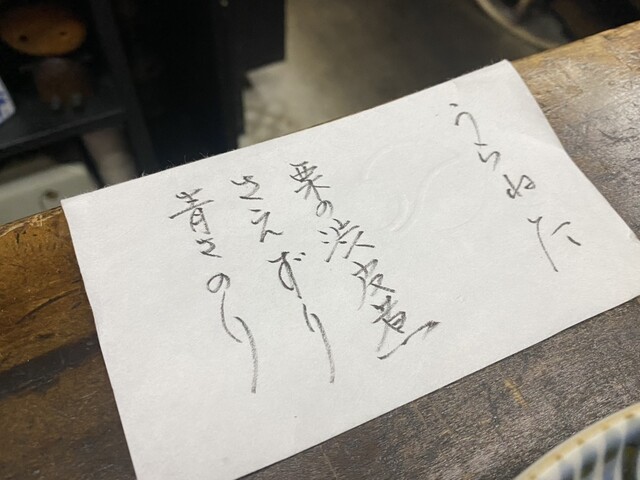 うらねた
栗の渋皮煮
さえずり
青さのり